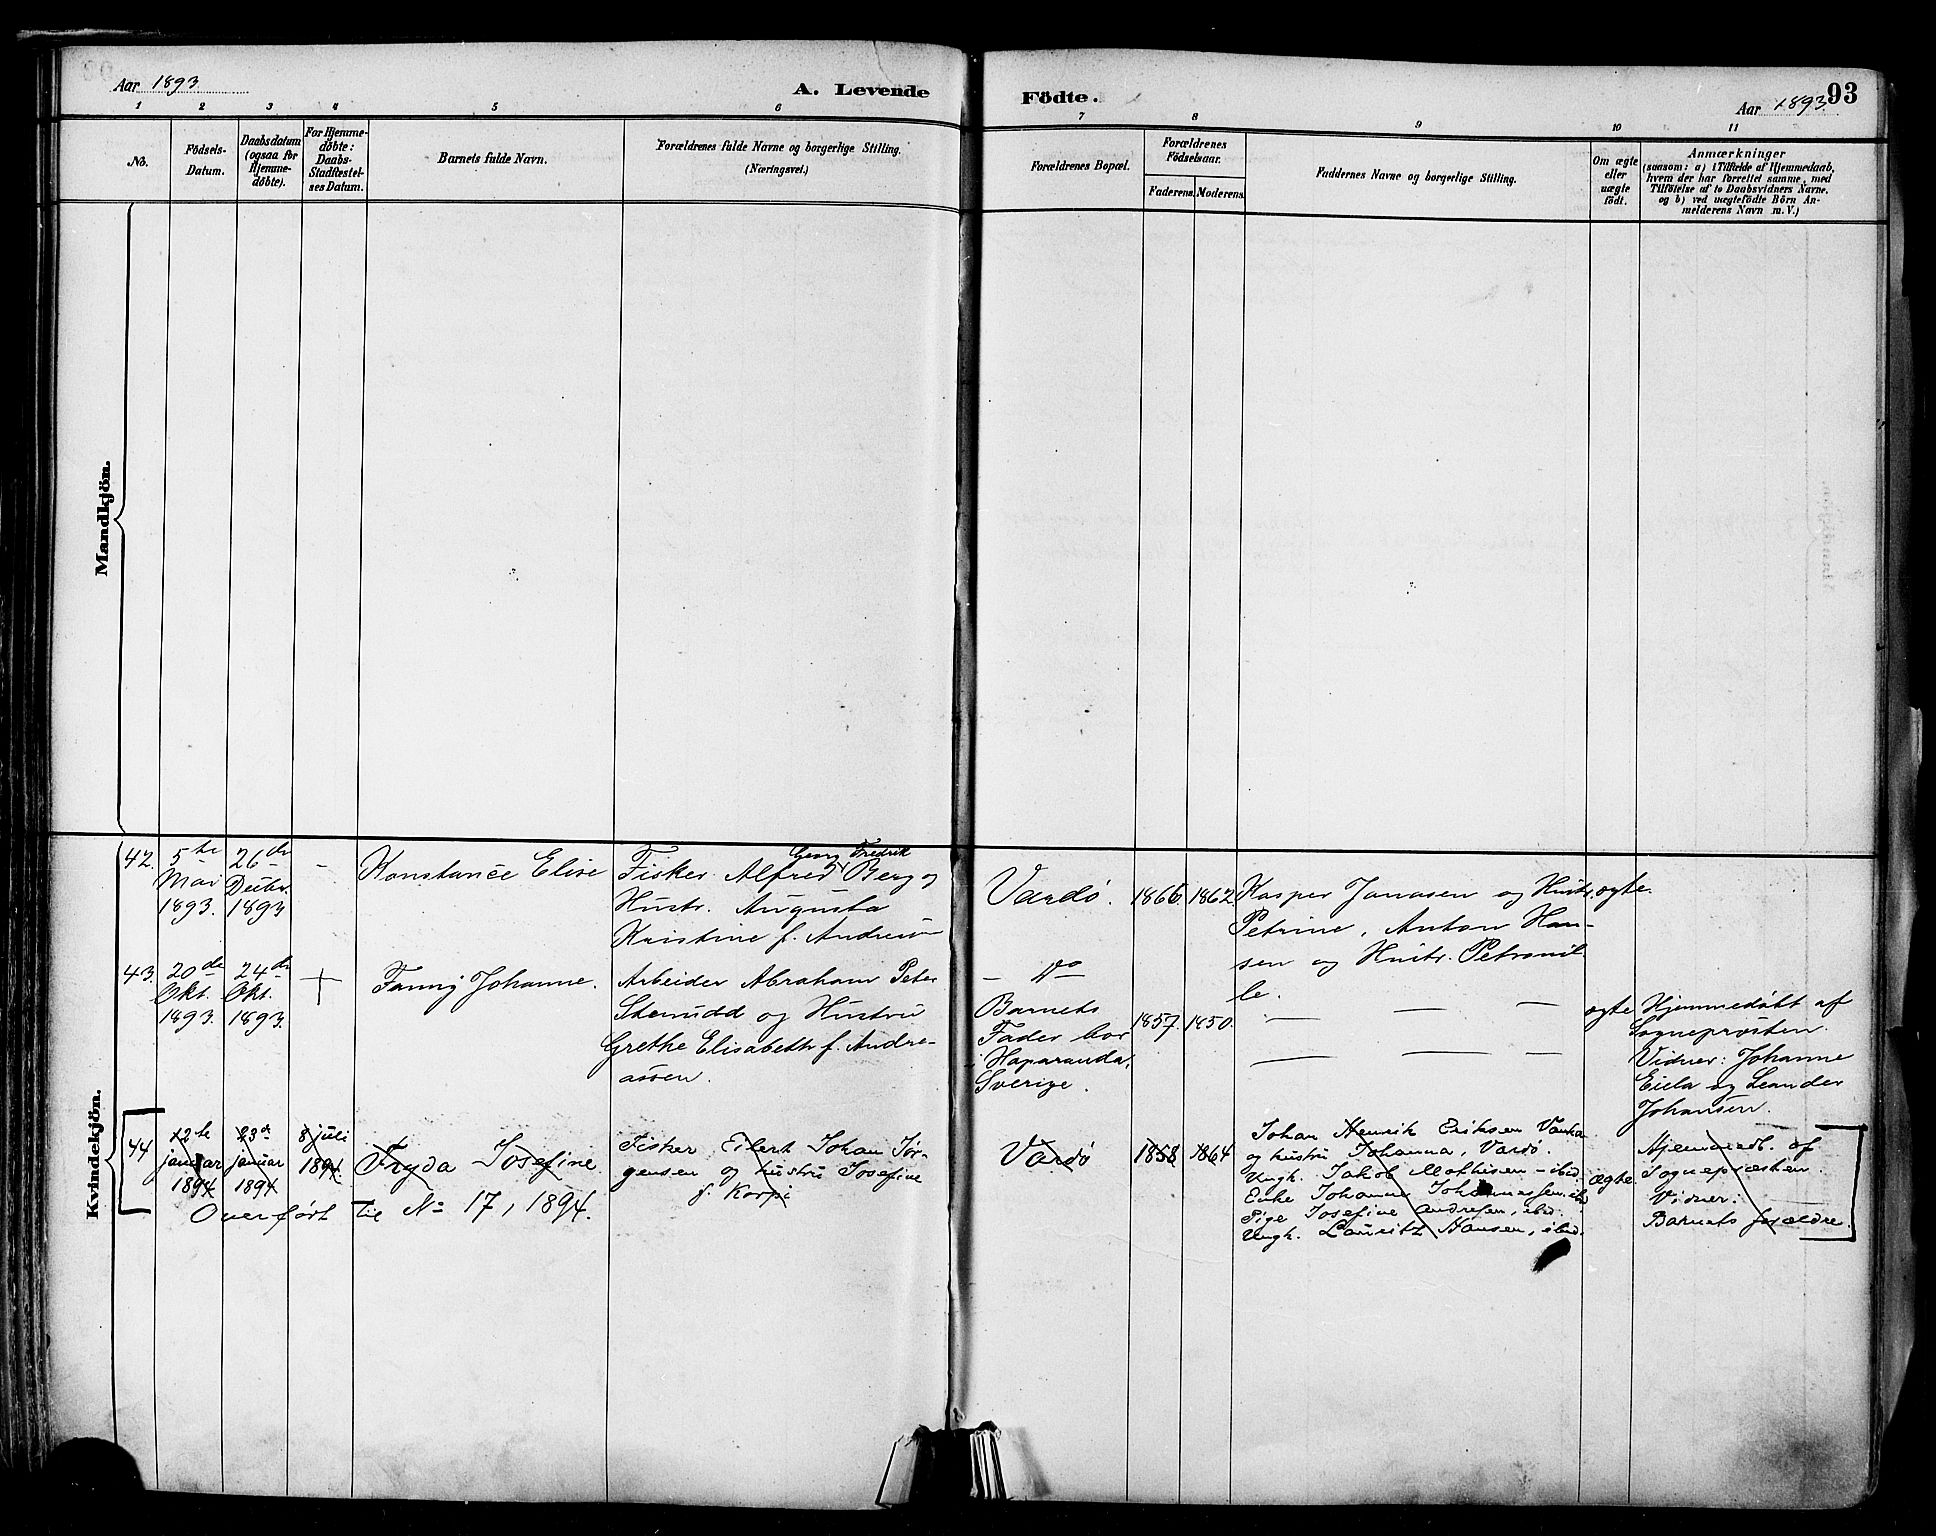 Aar 1893.
A. Levende Födte.
Aar 1893.
93
1 2 3 4 5 6 7 8 9 10 11
No.
Födsels-
Datum.
Daabsdatum
(ogsaa for
Hjemme-
döbte).
For Hjemme-
döbte:
Daabs-
Stadfestel-
ses Datum.
Barnets fulde Navn.
Forældrenes fulde Navne og borgerlige Stilling.
(Næringsvei.)
Forældrenes Bopæl.
Forældrenes
Födselsaar.
Faderens. Moderens.
Faddernes Navne og borgerlige Stilling.
Om ægte
eller
uægte
födt.
Anmærkninger
(saasom: a) i Tilfælde af Hjemmedaab,
hvem der har forrettet samme, med
Tilföielse af to Daabsvidners Navne,
og b) ved uægtefödte Börn An-
melderens Navn m. V.)
Mandkjön.
Kvindekjön.
42.
5te
Mai
1893.
26de
Decbr.
1893
–
Konstance Elise
Georg Fredrik
Fisker Alfred Berg og
Hustr. Augusta
Kristine f. Andresen
Vardø.
1866. 1862.
Kasper Jonasen og Hustr.
Petrine, Anton Han-
sen og Hustr. Petronil-
le.
ægte.
43.
20de
Okt.
1893.
24de
Okt.
1893.
+
Fanny Johanne.
Arbeider Abraham Peter
Stenudd og Hustru
Grethe Elisabeth f. Andre-
assen.
– Do
Barnets
Fader bor
i Haparanda,
Sverige.
1857. 1850.
— — —
— — —
ægte
Hjemmedøbt af
Sognepræsten.
Vidner: Johanne
Eiela og Leander
Johansen.
44
12te
januar
1894
23de
januar
1894
8 juli
1894.
Fryda Josefine.
Fisker Eilert Johan Jør-
gensen og hustru Josefine
f. Korpi
Vardø
1858 1864
Johan Henrik Eriksen Vanha
og hustru Johanna, Vardø.
Ungk. Jakob Mathisen – ibid.
Enke Johanne Johannessen. ibid
Pige Josefine Andresen, ibid.
Ungk. Lauritz Hansen, ibid.
ægte.
Hjemmedb. af
Sognepræsten.
Vidner:
Barnets forældre.
Overført til No 17, 1894.